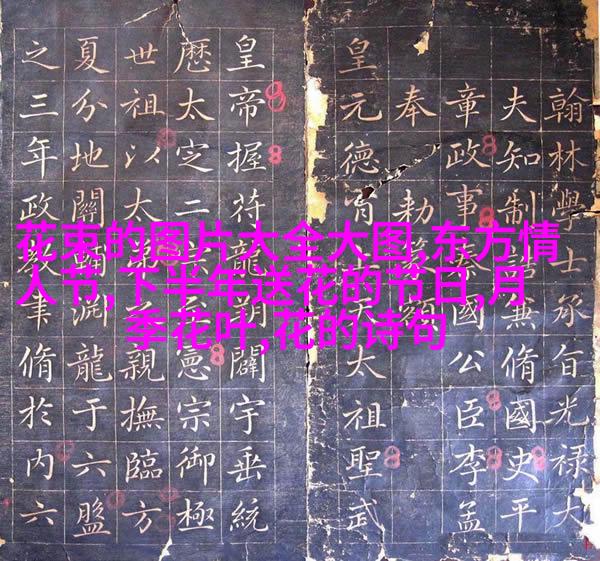 花束的图片大全大图,东方情
人节,下半年送花的节日,月
季花叶,花的诗句
翰林學士承旨光祿大
夫知制誥兼脩國史平
章政事國公臣李孟
奉勅
皇元德大太祖聖武
皇帝握符龍朔闢宇垂統
厯太定二憲宗御極
世祖以太親撫臨方
夏分地關淵龍于六盤
之三年政教聿脩於內六